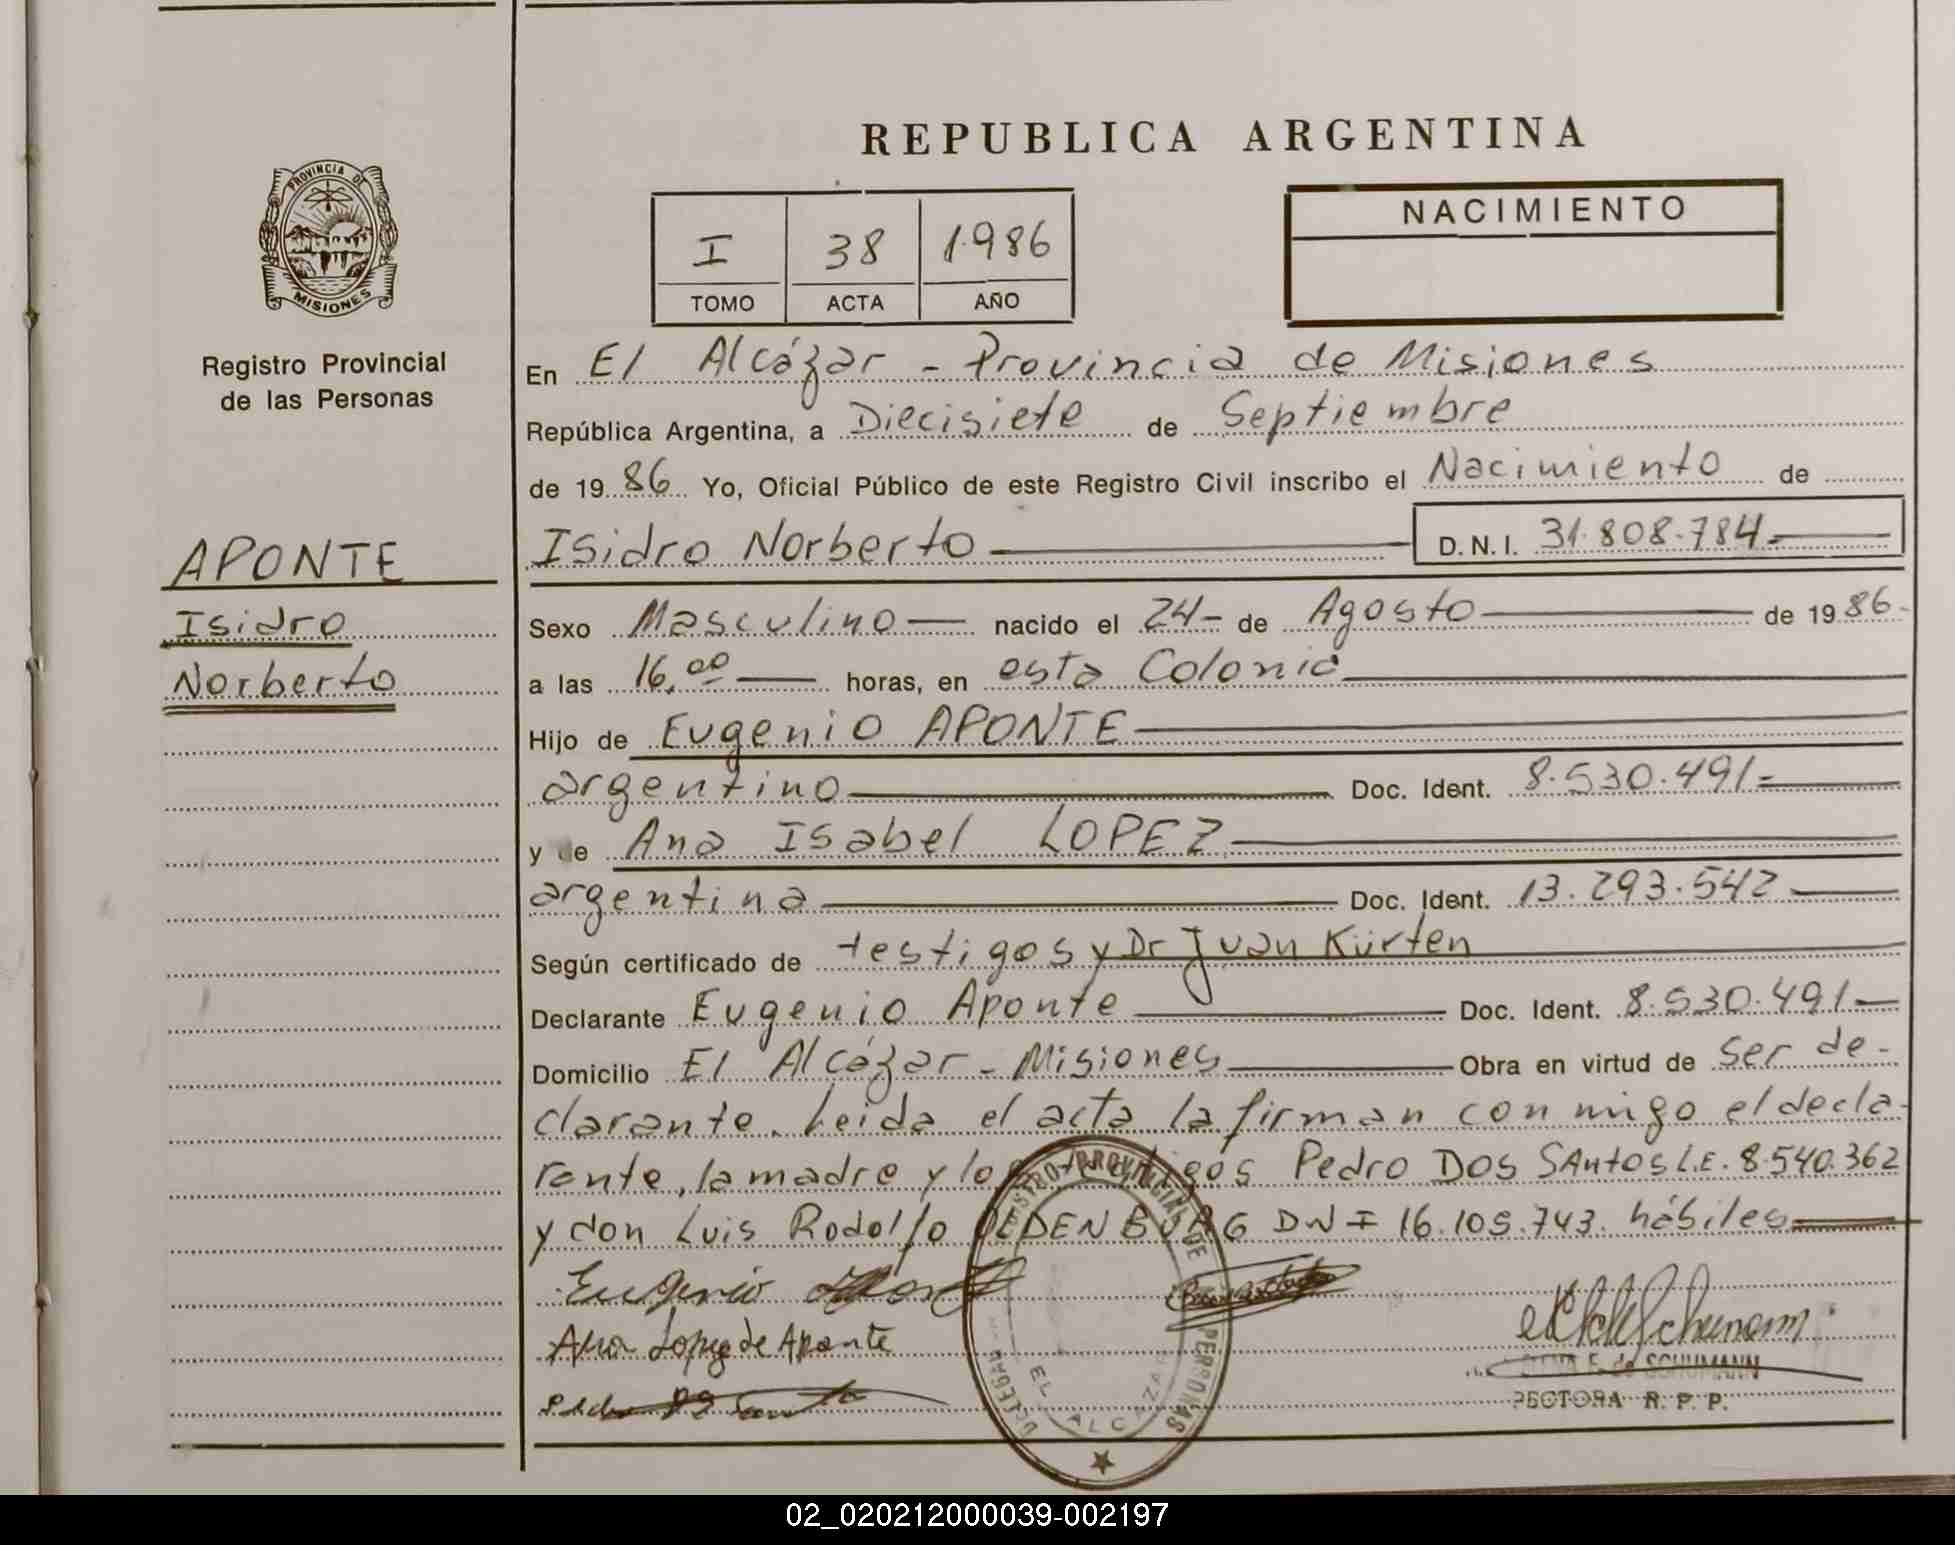 REPUBLICA ARGENTINA
PROVINCIA DE
MISIONES
Registro Provincial
de las Personas
I 38 1986
TOMO ACTA AÑO
NACIMIENTO
En El Alcázar - Provincia de Misiones
República Argentina, a Diecisiete de Septiembre
de 1986 Yo, Oficial Público de este Registro Civil inscribo el Nacimiento de
Isidro Norberto D.N.I. 31.808.784
APONTE
Isidro
Norberto
Sexo Masculino nacido el 24 de Agosto de 1986
a las 16,00 horas, en esta Colonia
Hijo de Eugenio APONTE
argentino Doc. Ident. 8.530.491
y de Ana Isabel LOPEZ
argentina Doc. Ident. 13.293.542
Según certificado de testigos y Dr Juan Kürten
Declarante Eugenio Aponte Doc. Ident. 8.530.491
Domicilio El Alcázar - Misiones Obra en virtud de ser de-
clarante. Leida el acta la firman con migo el decla-
rante, la madre y los testigos Pedro Dos SAntos L.E. 8.540.362
y don Luis Rodolfo DNI 16.105.743. hábiles
Eugenio
Ana Lopez de Aponte
REGISTRO PROVINCIAL DE PERSONAS
EL ALCAZAR
E. de SCHUMANN
R. P. P.
02_020212000039-002197